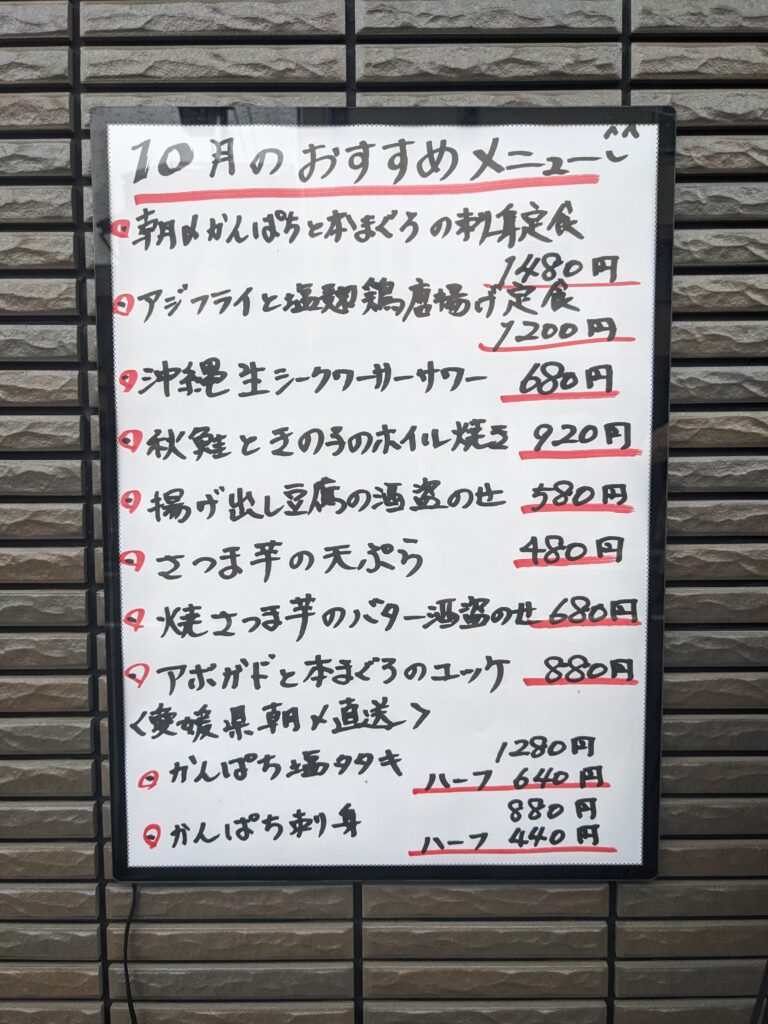 10月のおすすめメニュー^^
朝〆かんぱちと本まぐろの刺身定食
1480円
アジフライと塩麹鶏唐揚げ定食
1200円
沖縄生シークワーサーサワー 680円
秋鮭ときの子のホイル焼き 920円
揚げ出し豆腐の酒盗のせ 580円
さつま芋の天ぷら 480円
焼さつま芋のバター酒盗のせ 680円
アボガドと本まぐろのユッケ 880円
<愛媛県朝〆直送>
かんぱち塩タタキ 1280円
ハーフ 640円
かんぱち刺身 880円
ハーフ 440円